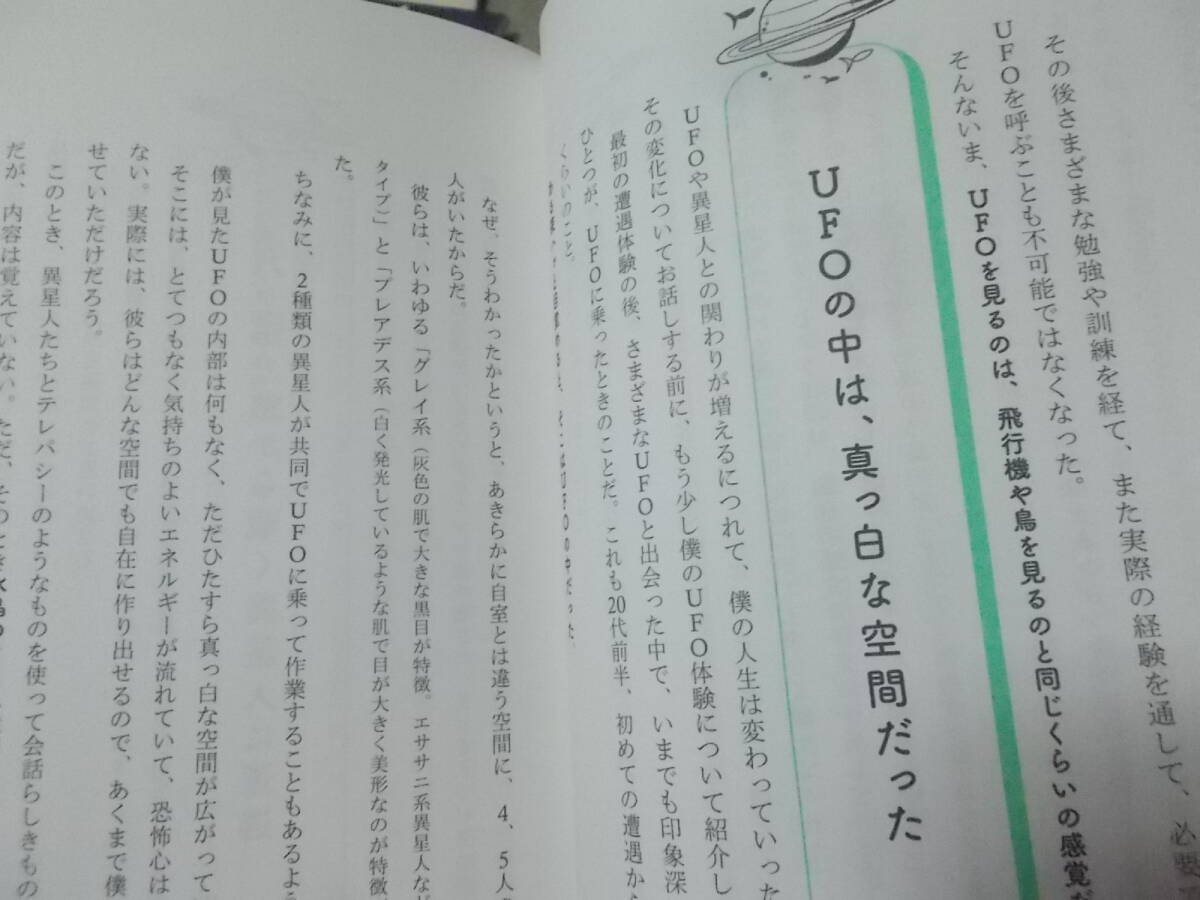 その後さまざまな勉強や訓練を経て、また実際の経験を通して、必要
UFOを呼ぶことも不可能ではなくなった。
そんないま、UFOを見るのは、飛行機や鳥を見るのと同じくらいの感覚だ
UFOの中は、真っ白な空間だった
UFOや異星人との関わりが増えるにつれて、僕の人生は変わっていった
その変化についてお話しする前に、もう少し僕のUFO体験について紹介し
最初の遭遇体験の後、さまざまなUFOと出会った中で、いまでも印象深
ひとつが、UFOに乗ったときのことだ。これも20代前半、初めての遭遇か
くらいのこと。
なぜ、そうわかったかというと、あきらかに自室とは違う空間に、4、5人
人がいたからだ。
彼らは、いわゆる「グレイ系（灰色の肌で大きな黒目が特徴。エササニ系異星人など
タイプ）」と「プレアデス系（白く発光しているような肌で目が大きく美形なのが特徴
た。
ちなみに、2種類の異星人が共同でUFOに乗って作業することもあるよう
僕が見たUFOの内部は何もなく、ただひたすら真っ白な空間が広がって
そこには、とてつもなく気持ちのよいエネルギーが流れていて、恐怖心は
ない。実際には、彼らはどんな空間でも自在に作り出せるので、あくまで僕
せていただけだろう。
このとき、異星人たちとテレパシーのようなものを使って会話らしきもの
だが、内容は覚えていない。ただ、そのとき